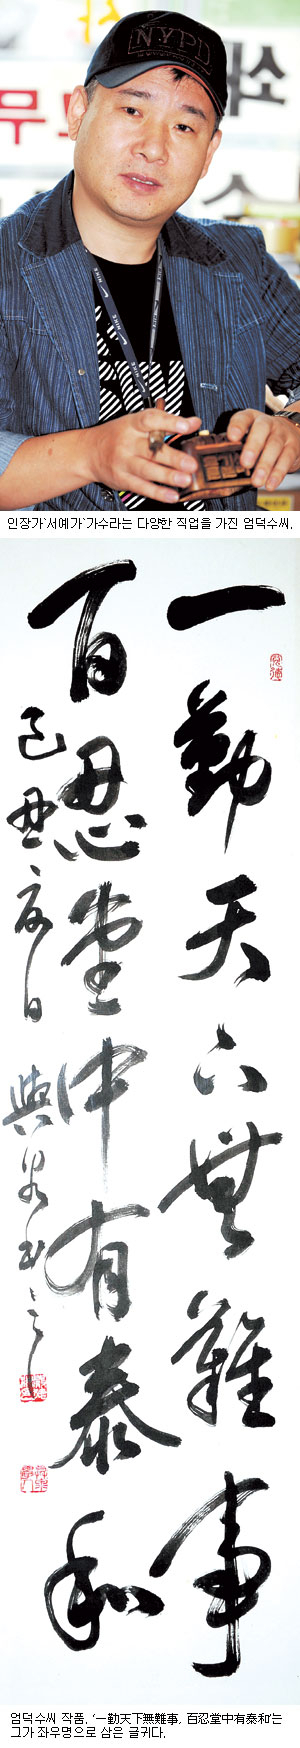 NYPD
쇄
고무
스
인장가`서예가`가수라는 다양한 직업을 가진 엄덕수씨.
一勤天下無難事
百忍堂中有泰和
己丑夏日
엄덕수씨 작품. ‘一勤天下無難事, 百忍堂中有泰和’는
그가 좌우명으로 삼은 글귀다.